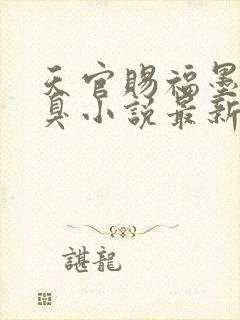 天官賜福墨
臭小說最新
諶龍